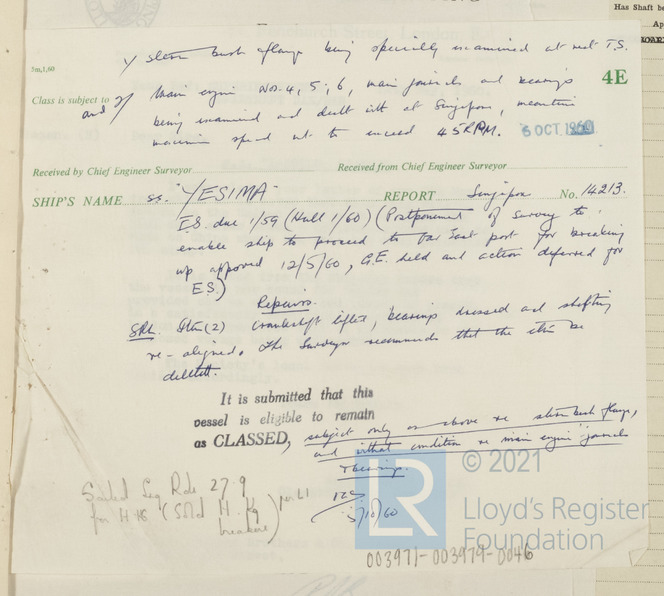 Has Shaft be
Ap
y stern bush flange being specially examined at next T.S.
5m,1,60
4E
Class is subject to
and y main engine Nos. 4, 5 & 6, main journals and bearings
being examined and dealt with at Singapore, meantime
maximum speed not to exceed 45 RPM.
6 OCT 1960
Received by Chief Engineer Surveyor
Received from Chief Engineer Surveyor
SHIP'S NAME ss. "YESIMA" REPORT Singapore No. 14213.
ES. due 1/59 (Hull 1/60) (Postponement of Survey to
enable ship to proceed to Far East port for breaking
up approved 12/5/60, G.E. held and action deferred for
ES.)
Repairs.
Item (2) Crankshaft lifted, bearings dressed and shafting
re-aligned. The Surveyor recommends that the item be
deleted.
It is submitted that this
vessel is eligible to remain
as CLASSED, subject only as above re stern bush flange,
and without condition re main engine journals
& bearings.
5/10/60
Sailed Sing Rds 27.9
for H K (Sold H. Kg
breakers) per LI
© 2021
LR
Lloyd's Register
Foundation
003971-003979-0046